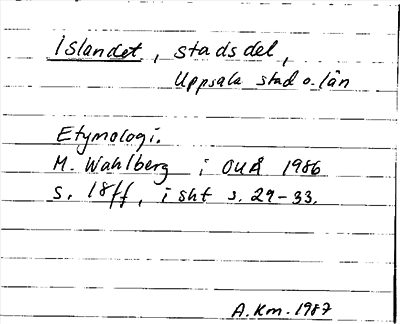 Islandet, stadsdel,
Uppsala stad o. län
Etymologi.
M. Wahlberg i OUÅ 1986
s. 18ff, i sht s. 29-33.
A.Km. 1987